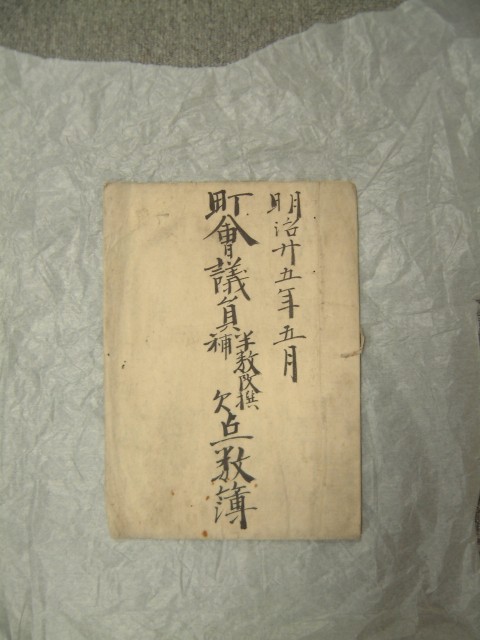 明治廿五年五月
町會議員
半数改撰
補欠
点数簿